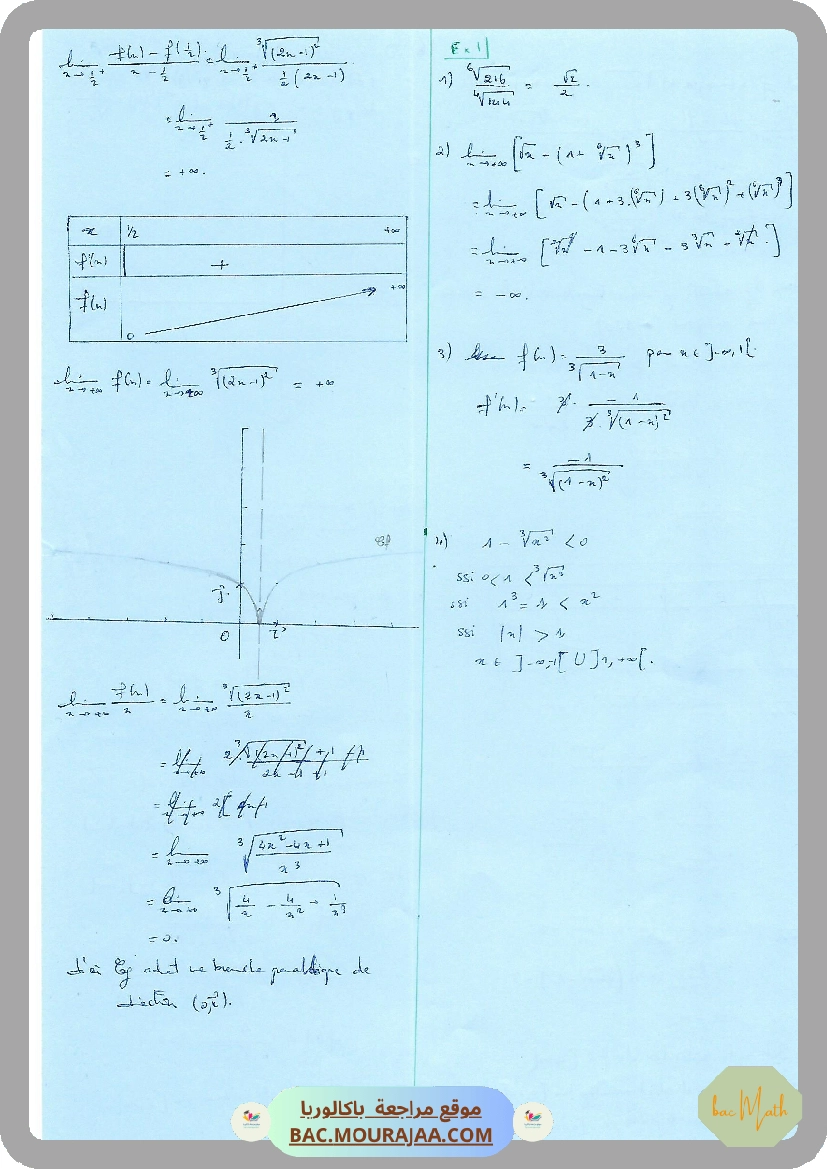 lim_{x→1/2⁺} (f(x) − f(1/2))/(x − 1/2) = lim_{x→1/2⁺} ∛((2x−1)²) / (1/2 (2x−1))
= lim_{x→1/2⁺} 1 / (1/2 · ∛(2x−1))
= +∞.
x 1/2 +∞
f'(x) +
f(x) 0 +∞
lim_{x→+∞} f(x) = lim_{x→+∞} ∛((2x−1)²) = +∞
Cf
J
O I
lim_{x→+∞} f(x)/x = lim_{x→+∞} ∛((2x−1)²) / x
= lim_{x→+∞} ∛((4x²−4x+1)/x³)
= lim_{x→+∞} ∛(4/x − 4/x² + 1/x³)
= 0.
d'où Cf admet une branche parabolique de
direction (o,i).
Ex 1
1) ⁶√216 / ⁴√144 = √2/2.
2) lim_{x→+∞} [√x − (1 + ⁶√x)³]
= lim_{x→+∞} [√x − (1 + 3.(⁶√x) + 3(⁶√x)² + (⁶√x)³]
= lim_{x→+∞} [√x − 1 − 3⁶√x − 3∛x − √x.]
= −∞.
3) f(x) = 3 ∛(1−x) pour x ∈ ]−∞,1[.
f'(x) = 3 · −1 / (3 · ∛((1−x)²))
= −1 / ∛((1−x)²)
4) 1 − ∛x² < 0
ssi 0 < 1 < ∛x²
ssi 1³ = 1 < x²
ssi |x| > 1
x ∈ ]−∞,−1[ ∪ ]1, +∞[.
موقع مراجعة باكالوريا
BAC.MOURAJAA.COM
bac Math